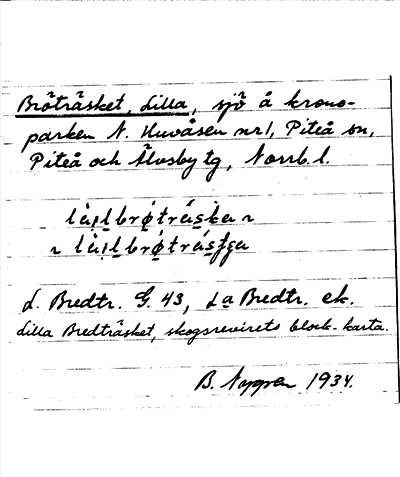 Bröträsket, Lilla, sjö å krono-
parken N. Huvåsen nr 1, Piteå sn,
Piteå och Älvsby tg, Norrb. l.
lìı̣l̯brǿ̣trás̯ka ~
~ lìı̣l̯brǿ̣trás̯ʃʒa
L. Bredtr. G. 43, La Bredtr. ek.
Lilla Bredträsket, skogsrevirets block-karta.
B. Nygren 1934.